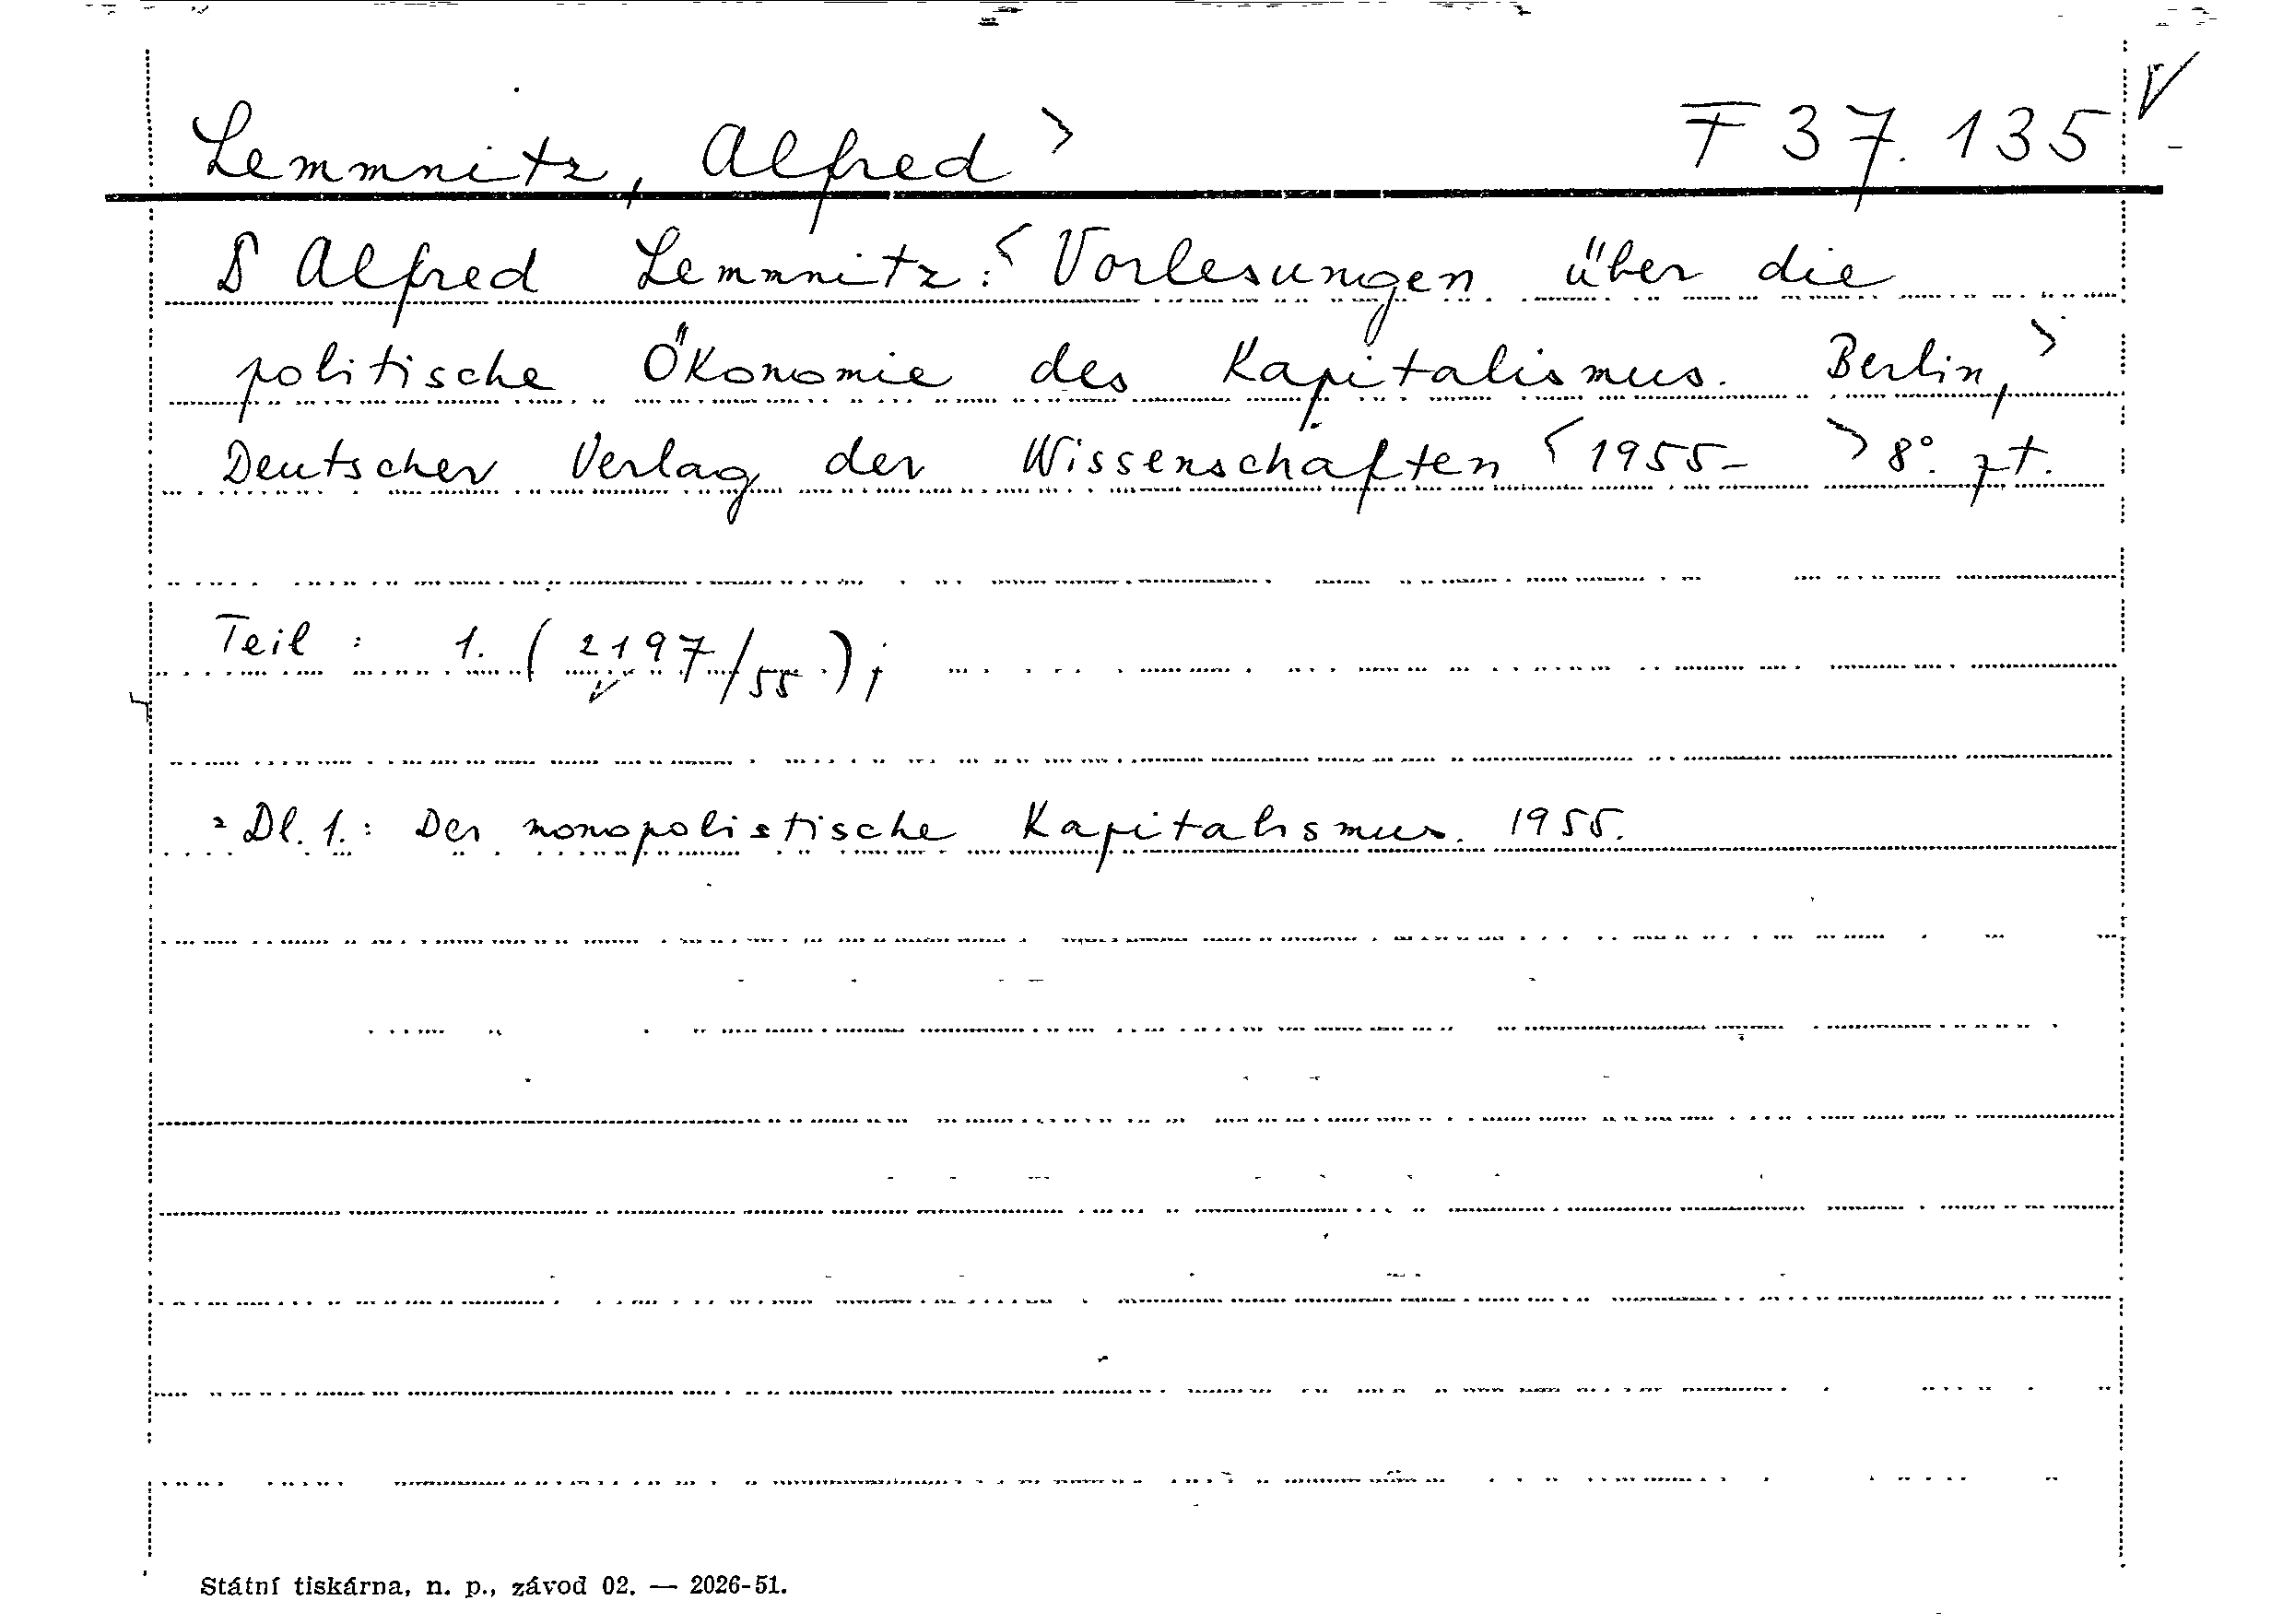 Lemmnitz, Alfred > F 37.135 V
Alfred Lemmnitz: < Vorlesungen über die
politische Ökonomie des Kapitalismus. Berlin, >
Deutscher Verlag der Wissenschaften < 1955- > 8°. zt.
Teil : 1. ( 2197/55 ) ;
Dl. 1.: Der monopolistische Kapitalismus. 1955.
Státní tiskárna, n. p., závod 02. — 2026-51.